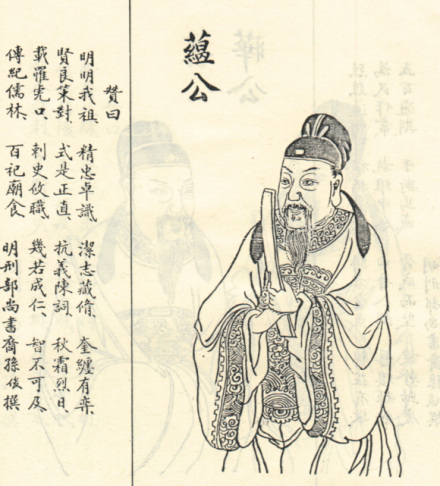 蘊公
贊曰
明明我祖、精忠卓識、潔志藏脩、奎纏有奕
賢良策對、式是正直、抗義陳詞、秋霜烈日、
載罹虎口、刺史攸職、幾若成仁、智不可及、
傳紀儒林、百祀廟食 明刑部尚書裔孫俊撰